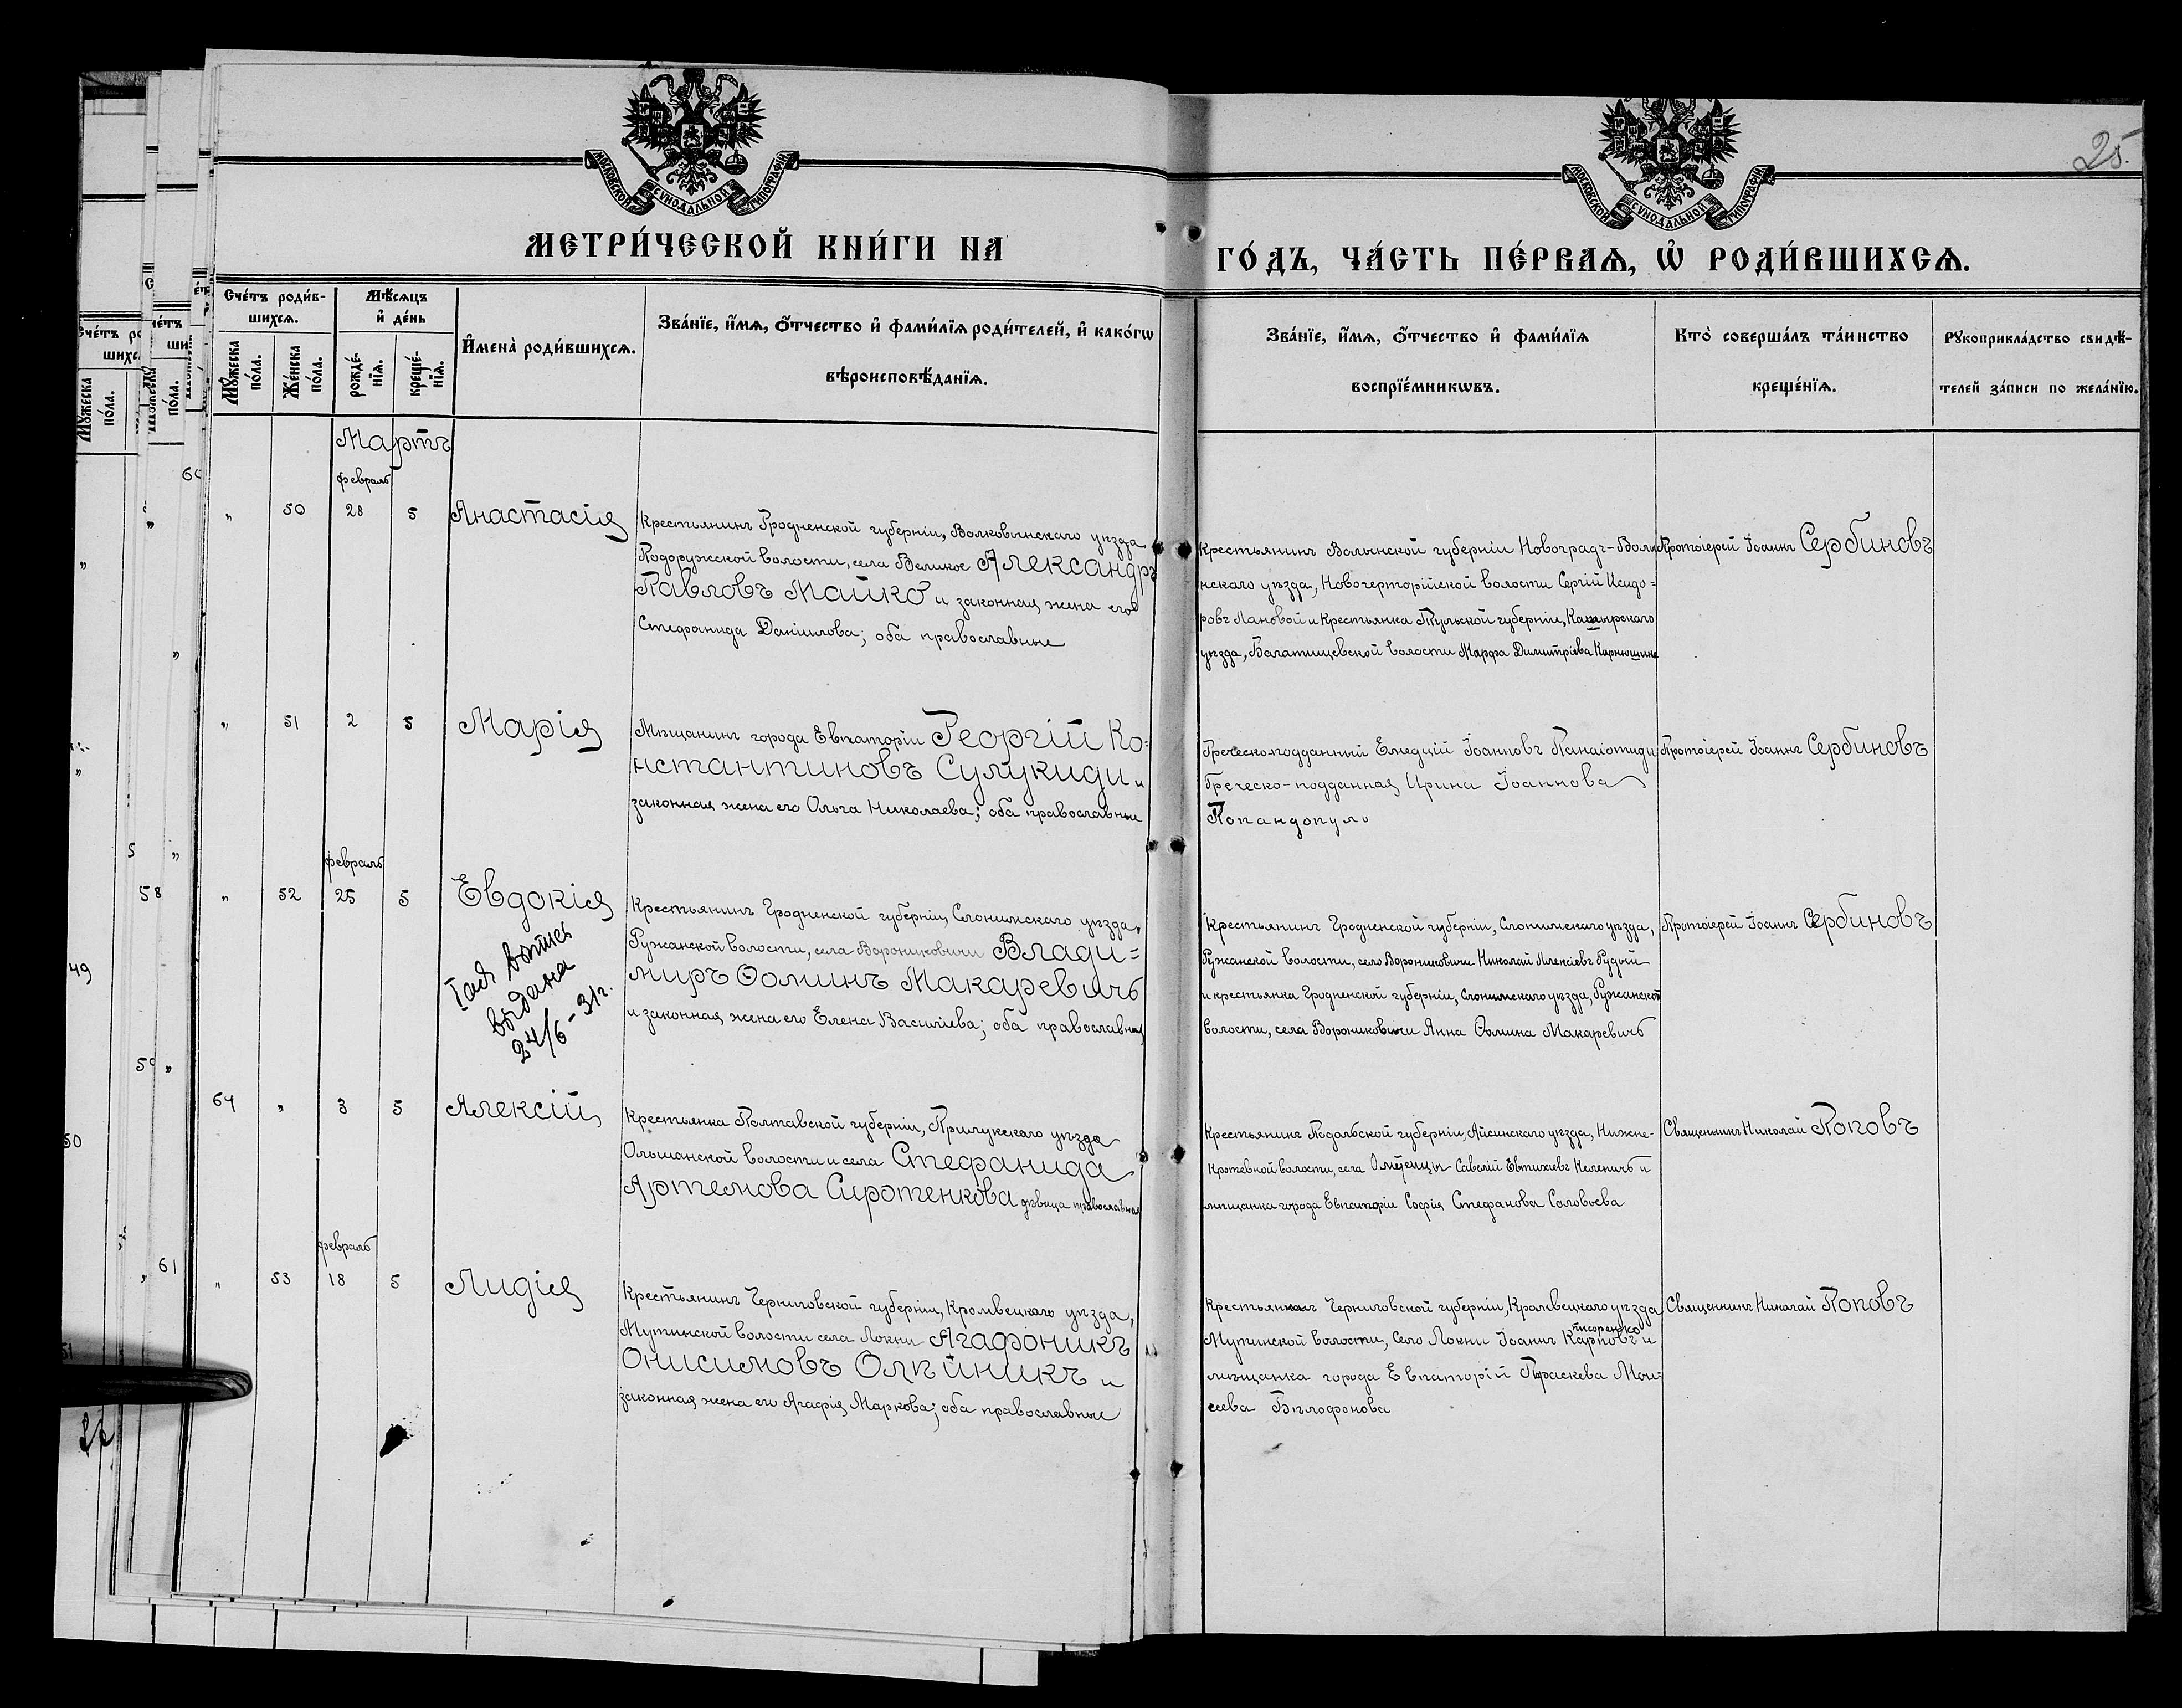 МОСКОВСКОЙ СѴНОДАЛЬНОЙ ТИПОГРАФІИ
МОСКОВСКОЙ СѴНОДАЛЬНОЙ ТИПОГРАФІИ
25.
МЕТРИ́ЧЕСКОЙ КНИ́ГИ НА
ГО́ДЪ, ЧА́СТЬ ПЕ́РВАѦ, Ѡ҆ РОДИ́ВШИХСѦ.
Сче́тъ роди́в-
шихсѧ.
Мꙋ́жеска
по́ла.
Же́нска
по́ла.
Мѣ́сѧцъ
и҆ де́нь
рожде́-
нїѧ.
креще́-
нїѧ.
И҆мена̀ роди́вшихсѧ.
Зва́нїе, и҆́мѧ, ѻ҆́тчество и҆ фами́лїѧ роди́телей, и҆ како́гѡ
вѣроисповѣ́данїѧ.
Зва́нїе, и҆́мѧ, ѻ҆́тчество и҆ фами́лїѧ
воспрїе́мникѡвъ.
Кто̀ соверша́лъ та́инство
креще́нїѧ.
Рꙋкоприкла́дство свидѣ́-
телей за́писи по жела́нїю.
Мартъ
февраль
" 50 28 5 Анастасія
Крестьянинъ Гродненской губерніи, Волковынскаго уѣзда
Подоружской волости, села Великое Александръ
Павловъ Майко и законная жена его
Стефанида Даніилова; оба православные
Крестьянинъ Волынской губерніи Новоградъ-Волы
нскаго уѣзда, Новочерторійской волости Сергій Исидо=
ровъ Лановой и Крестьянка Тульской губерніи, Каширскаго
уѣзда, Богатищевской волости Марфа Димитріева Карнюшина
Протоіерей Іоаннъ Сербиновъ
" 51 2 5 Марія
Мѣщанинъ города Евпаторіи Георгій Ко=
нстантиновъ Сулукиди и
законная жена его Ольга Николаева; оба православные
Греческоподданный Іоанновъ Панаіотиди
Греческо-подданная Ирина Іоаннова
Попандопуло
Протоіерей Іоаннъ Сербиновъ
февраль
" 52 25 5 Евдокія
выпись
выдана
24/6-31г.
Крестьянинъ Гродненской губерніи, Слонимскаго уѣзда,
Ружанской волости, села Ворониковичи Влади=
миръ Ѳоминъ Макаревичъ
и законная жена его Елена Василіева; оба православные
Крестьянинъ Гродненской губерніи, Слонимскаго уѣзда,
Ружанской волости, село Ворониковичи Николай Алексіевъ Рудой
и крестьянка Гродненской губерніи, Слонимскаго уѣзда, Ружанской
волости, села Ворониковичи Анна Ѳомина Макаревичъ
Протоіерей Іоаннъ Сербиновъ
64 " 3 5 Алексій
Крестьянка Полтавской губерніи, Прилукскаго уѣзда
Ольшанской волости и села Стефанида
Артемова Сиротенкова дѣвица православная
Крестьянинъ Подольской губерніи, Айсинскаго уѣзда, Нижне-
Кропевной волости, села Савелій Евтихіевъ Келеничъ и
мѣщанка города Евпаторіи Софія Стефанова Соловьева
Священникъ Николай Поповъ
февраль
" 53 18 5 Лидія
Крестьянинъ Черниговской губерніи, Кролвецкаго уѣзда,
Мутинской волости села Локни Агафоникъ
Онисимовъ Олѣйникъ и
законная жена его Агафія Маркова; оба православные
Крестьянинъ Черниговской губерніи, Кролвецкаго уѣзда
Мутинской волости, Село Локни Іоаннъ Карповъ Писоренко и
мѣщанка города Евпаторій Параскева Мои=
сеева Бѣлофонова
Священникъ Николай Поповъ